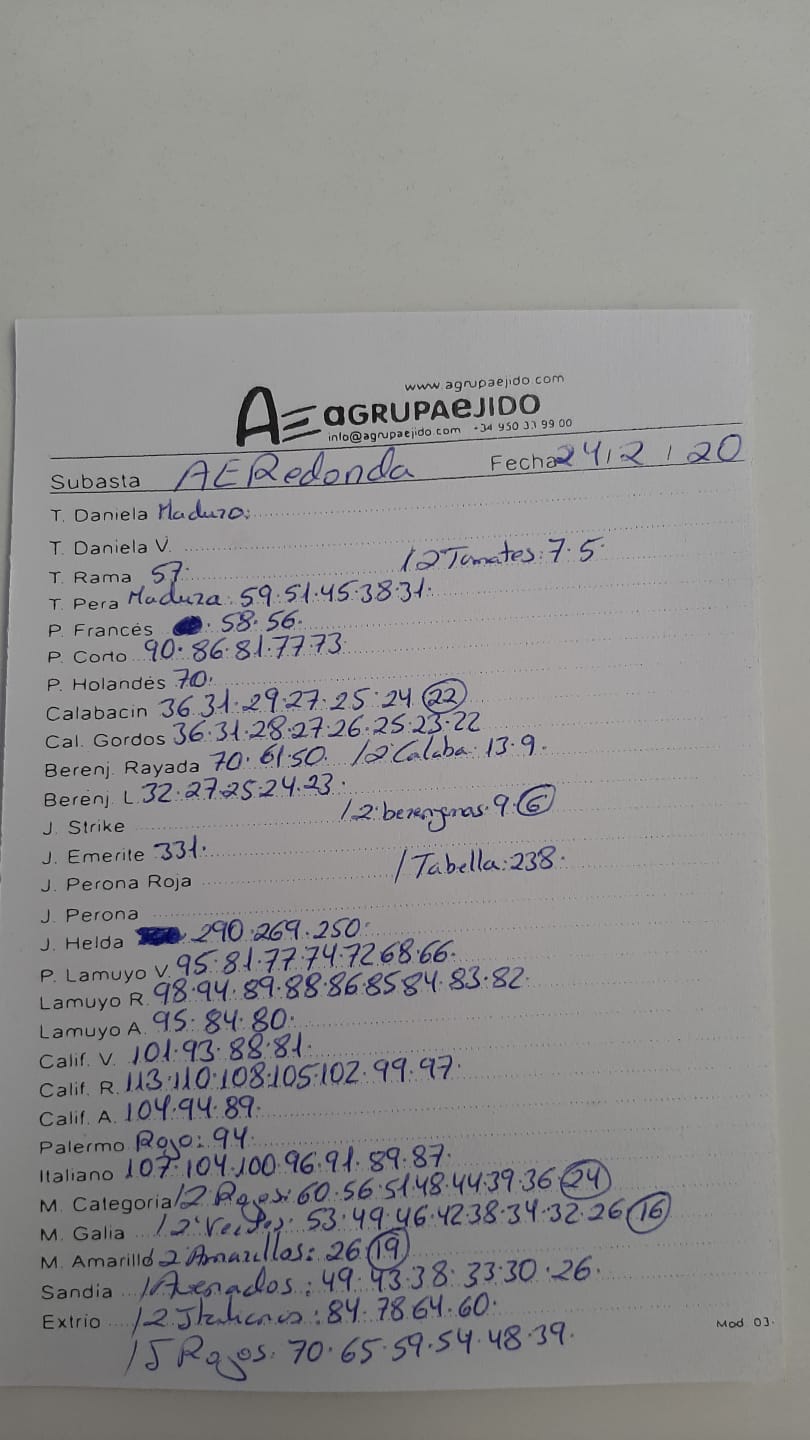 www.agrupaejido.com
AE aGRUPAeJIDO
info@agrupaejido.com +34 950 33 99 00
Subasta AERedonda Fecha 24/2/20
T. Daniela Maduro:
T. Daniela V.
T. Rama 57. /2 Tomates: 7.5.
T. Pera Madura: 59.51.45.38.31.
P. Francés 58.56.
P. Corto 90.86.81.77.73
P. Holandés 70.
Calabacin 36.31.29.27.25.24 22
Cal. Gordos 36.31.28.27.26.25.23.22
Berenj. Rayada 70.61.50. /2 Calaba: 13.9.
Berenj. L. 32.27.25.24.23.
J. Strike /2 berenjenas. 9. 6
J. Emerite 331.
J. Perona Roja / Tabella: 238.
J. Perona
J. Helda 290.269.250.
P. Lamuyo V. 95.81.77.74.72.68.66.
Lamuyo R. 98.94.89.88.86.85.84.83.82.
Lamuyo A. 95.84.80.
Calif. V. 101.93.88.81.
Calif. R. 113.110.108.105.102.99.97.
Calif. A. 104.94.89.
Palermo Rojo: 94.
Italiano 107.104.100.96.91.89.87.
M. Categoria /2 Rojos: 60.56.51.48.44.39.36. 24
M. Galia /2 Verdes: 53.49.46.42.38.34.32.26 16
M. Amarillo 2 Amarillos: 26. 19
Sandia / Asenados: 49.43.38.33.30.26.
Extrio /2 Italianos: 84.78.64.60.
Mod 03.
/J Rojos. 70.65.59.54.48.39.